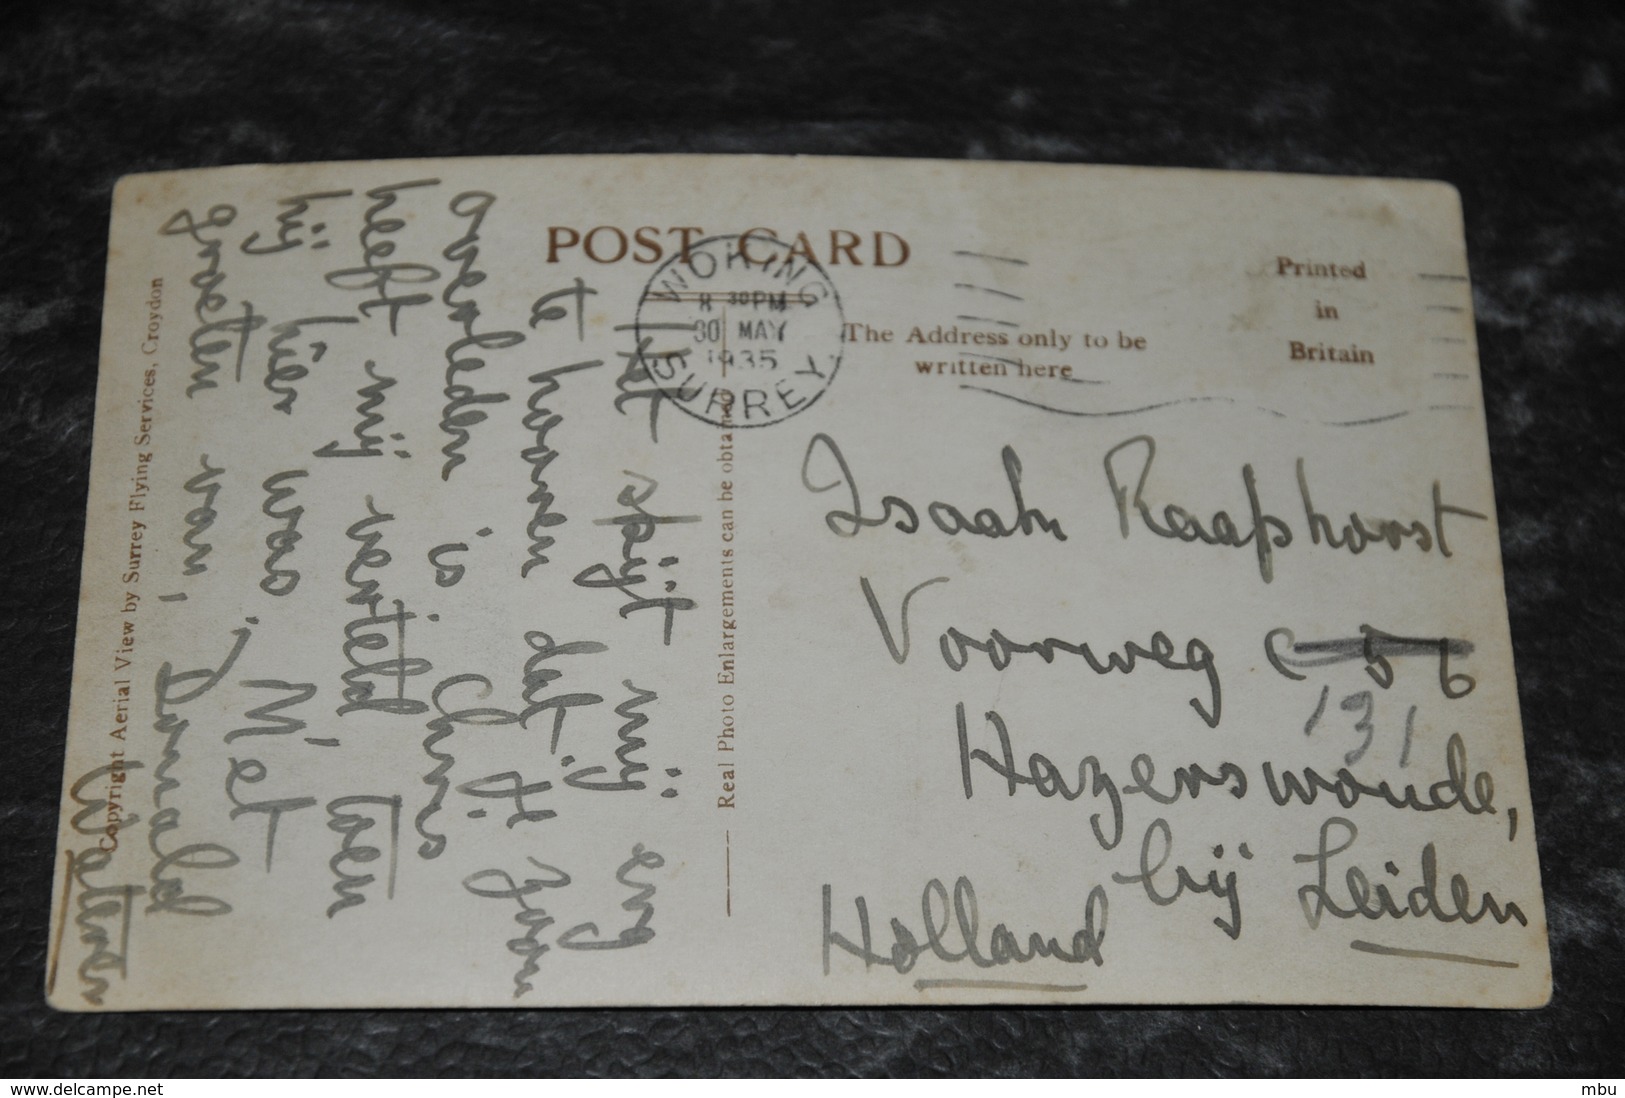 POST CARD
WOKING
8 30 PM
30 MAY
1935
SURREY
The Address only to be
written here
Printed
in
Britain
Het spijt mij erg
te hooren dat. H. zoon
overleden is Chris
heeft mij verteld toen
hij hier was; Met
groeten van, Donald
Waterer
Isaak Raaphorst
Voorweg c 56
131
Hazerswoude,
bij Leiden
Holland
Real Photo Enlargements can be obtained
Copyright Aerial View by Surrey Flying Services, Croydon
www.delcampe.net
mbu